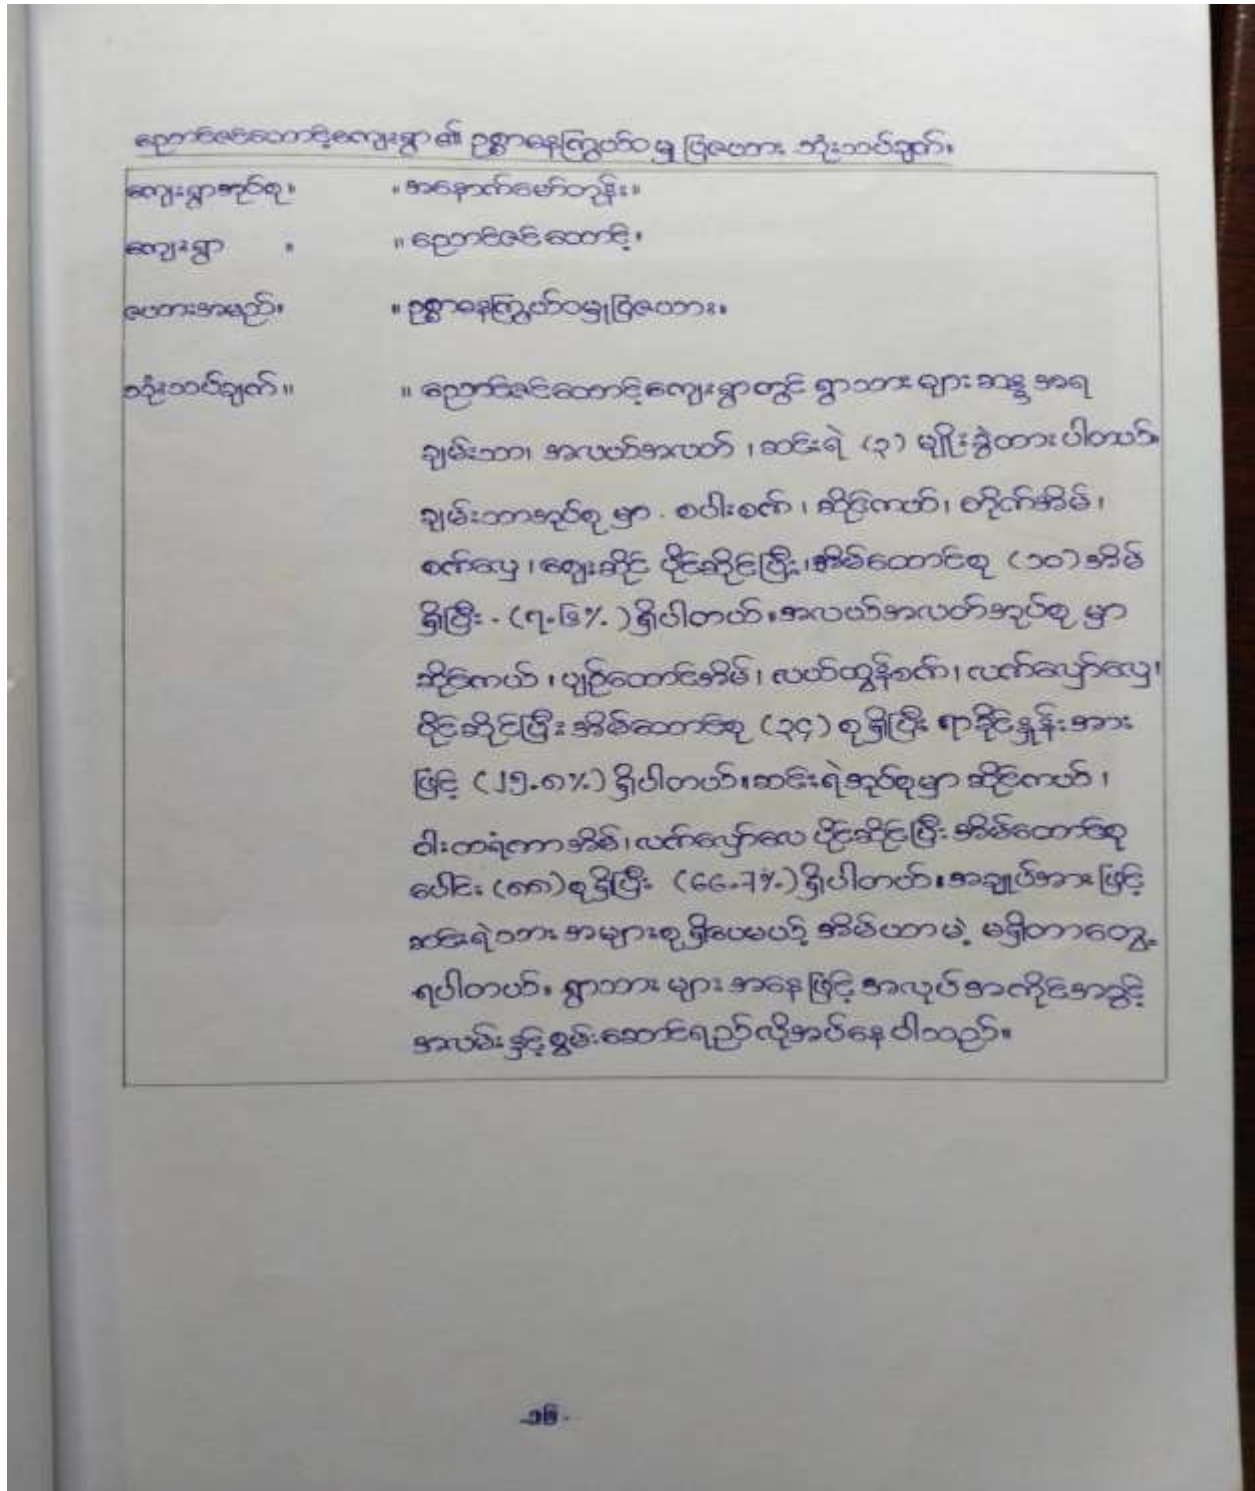 ညောင်ဇင်ထောင့်ကျေးရွာ၏ ဥစ္စာဓနကြွယ်ဝမှု ပြဇယား သုံးသပ်ချက်။
ကျေးရွာအုပ်စု။ ။ အနောက်မော်တုန်း။
ကျေးရွာ ။ ။ ညောင်ဇင်ထောင့်။
ဇယားအမည်။ ။ ဥစ္စာဓနကြွယ်ဝမှုပြဇယား။
သုံးသပ်ချက်။ ။ ညောင်ဇင်ထောင့်ကျေးရွာတွင် ရွာသားများဆန္ဒအရ
ချမ်းသာ၊ အလယ်အလတ်၊ ဆင်းရဲ (၃) မျိုးခွဲထားပါတယ်။
ချမ်းသာအုပ်စုမှာ - စပါးစက်၊ ဆိုင်ကယ်၊ တိုက်အိမ်၊
စက်လှေ၊ ဈေးဆိုင် ပိုင်ဆိုင်ပြီး၊ အိမ်ထောင်စု (၁၀) အိမ်
ရှိပြီး - (၇.၆%) ရှိပါတယ်။ အလယ်အလတ်အုပ်စုမှာ
ဆိုင်ကယ်၊ ပျဉ်ထောင်အိမ်၊ လယ်ထွန်စက်၊ လက်လှော်လှေ၊
ပိုင်ဆိုင်ပြီး အိမ်ထောင်စု (၃၄) စုရှိပြီး ရာခိုင်နှုန်းအား
ဖြင့် (၂၅.၈%) ရှိပါတယ်။ ဆင်းရဲအုပ်စုမှာ ဆိုင်ကယ်၊
ဝါးထရံကာအိမ်၊ လက်လှော်လေ ပိုင်ဆိုင်ပြီး အိမ်ထောင်စု
ပေါင်း (၈၈) စုရှိပြီး (၆၆.၇%) ရှိပါတယ်။ အချုပ်အားဖြင့်
ဆင်းရဲသား အများစုရှိပေမယ့် အိမ်ယာမဲ့ မရှိတာတွေ့
ရပါတယ်။ ရွာသားများအနေဖြင့် အလုပ်အကိုင်အခွင့်
အလမ်းနှင့် စွမ်းဆောင်ရည်လိုအပ်နေပါသည်။
-၁၆-